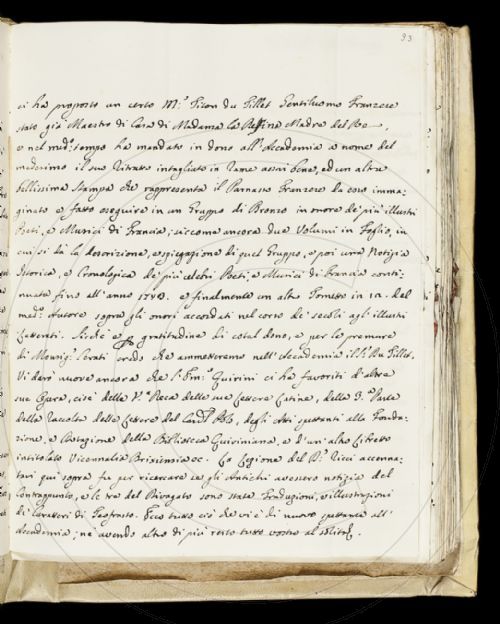 93
ci ha proposto un certo M.r Titon du Tillet Gentiluomo Franzese
stato già Maestro di Casa di Madama la Delfina Madre del Re,
e nel med.o tempo ha mandato in dono all'Accademia a nome del
medesimo il suo Ritratto intagliato in Rame assai bene, ed un altra
bellissima Stampa che rappresenta il Parnasso Franzese da esso imma-
ginato e fatto eseguire in un Gruppo di Bronzo in onore de' più illustri
Poeti, e Musici di Francia, siccome ancora due Volumi in Foglio, in
cui si dà la descrizione, e spiegazione di quel Gruppo, e poi una Notizia
Istorica, e Cronologica de' più celebri Poeti, e Musici di Francia conti-
nuata fino all'anno 1743. e finalmente un altro Tometto in 12. del
med.o Autore sopra gli onori accordati nel corso de' secoli agl'illustri
Letterati. Sicchè e gratitudine di cotal dono, e per le premure
di Monsig.r Cerati credo che ammetteremo nell'Accademia il S.r Du Tillet.
Vi darò nuova ancora che l'Em.o Quirini ci ha favoriti d'altre
sue Opere, cioè della Deca delle sue Lettere Latine, della 3.a Parte
della Raccolta delle Lettere del Card.l Polo, degli Atti spettanti alla Fonda-
zione, e Dotazione della Biblioteca Quiriniana, e d'un altro Libretto
intitolato Vicennalia Brixiensia &c. La Lezione del D.r Ricci accenna-
tavi qui sopra fu per ricercare se gli Antichi avessero notizia del
Contrappunto, e le tre del sono state Traduzioni, e illustrazioni
di Caratteri di Teofrasto. Ecco tutto ciò che vi è di nuovo spettante all'
Accademia; ne avendo altro di più resto tutto vostro al solito.